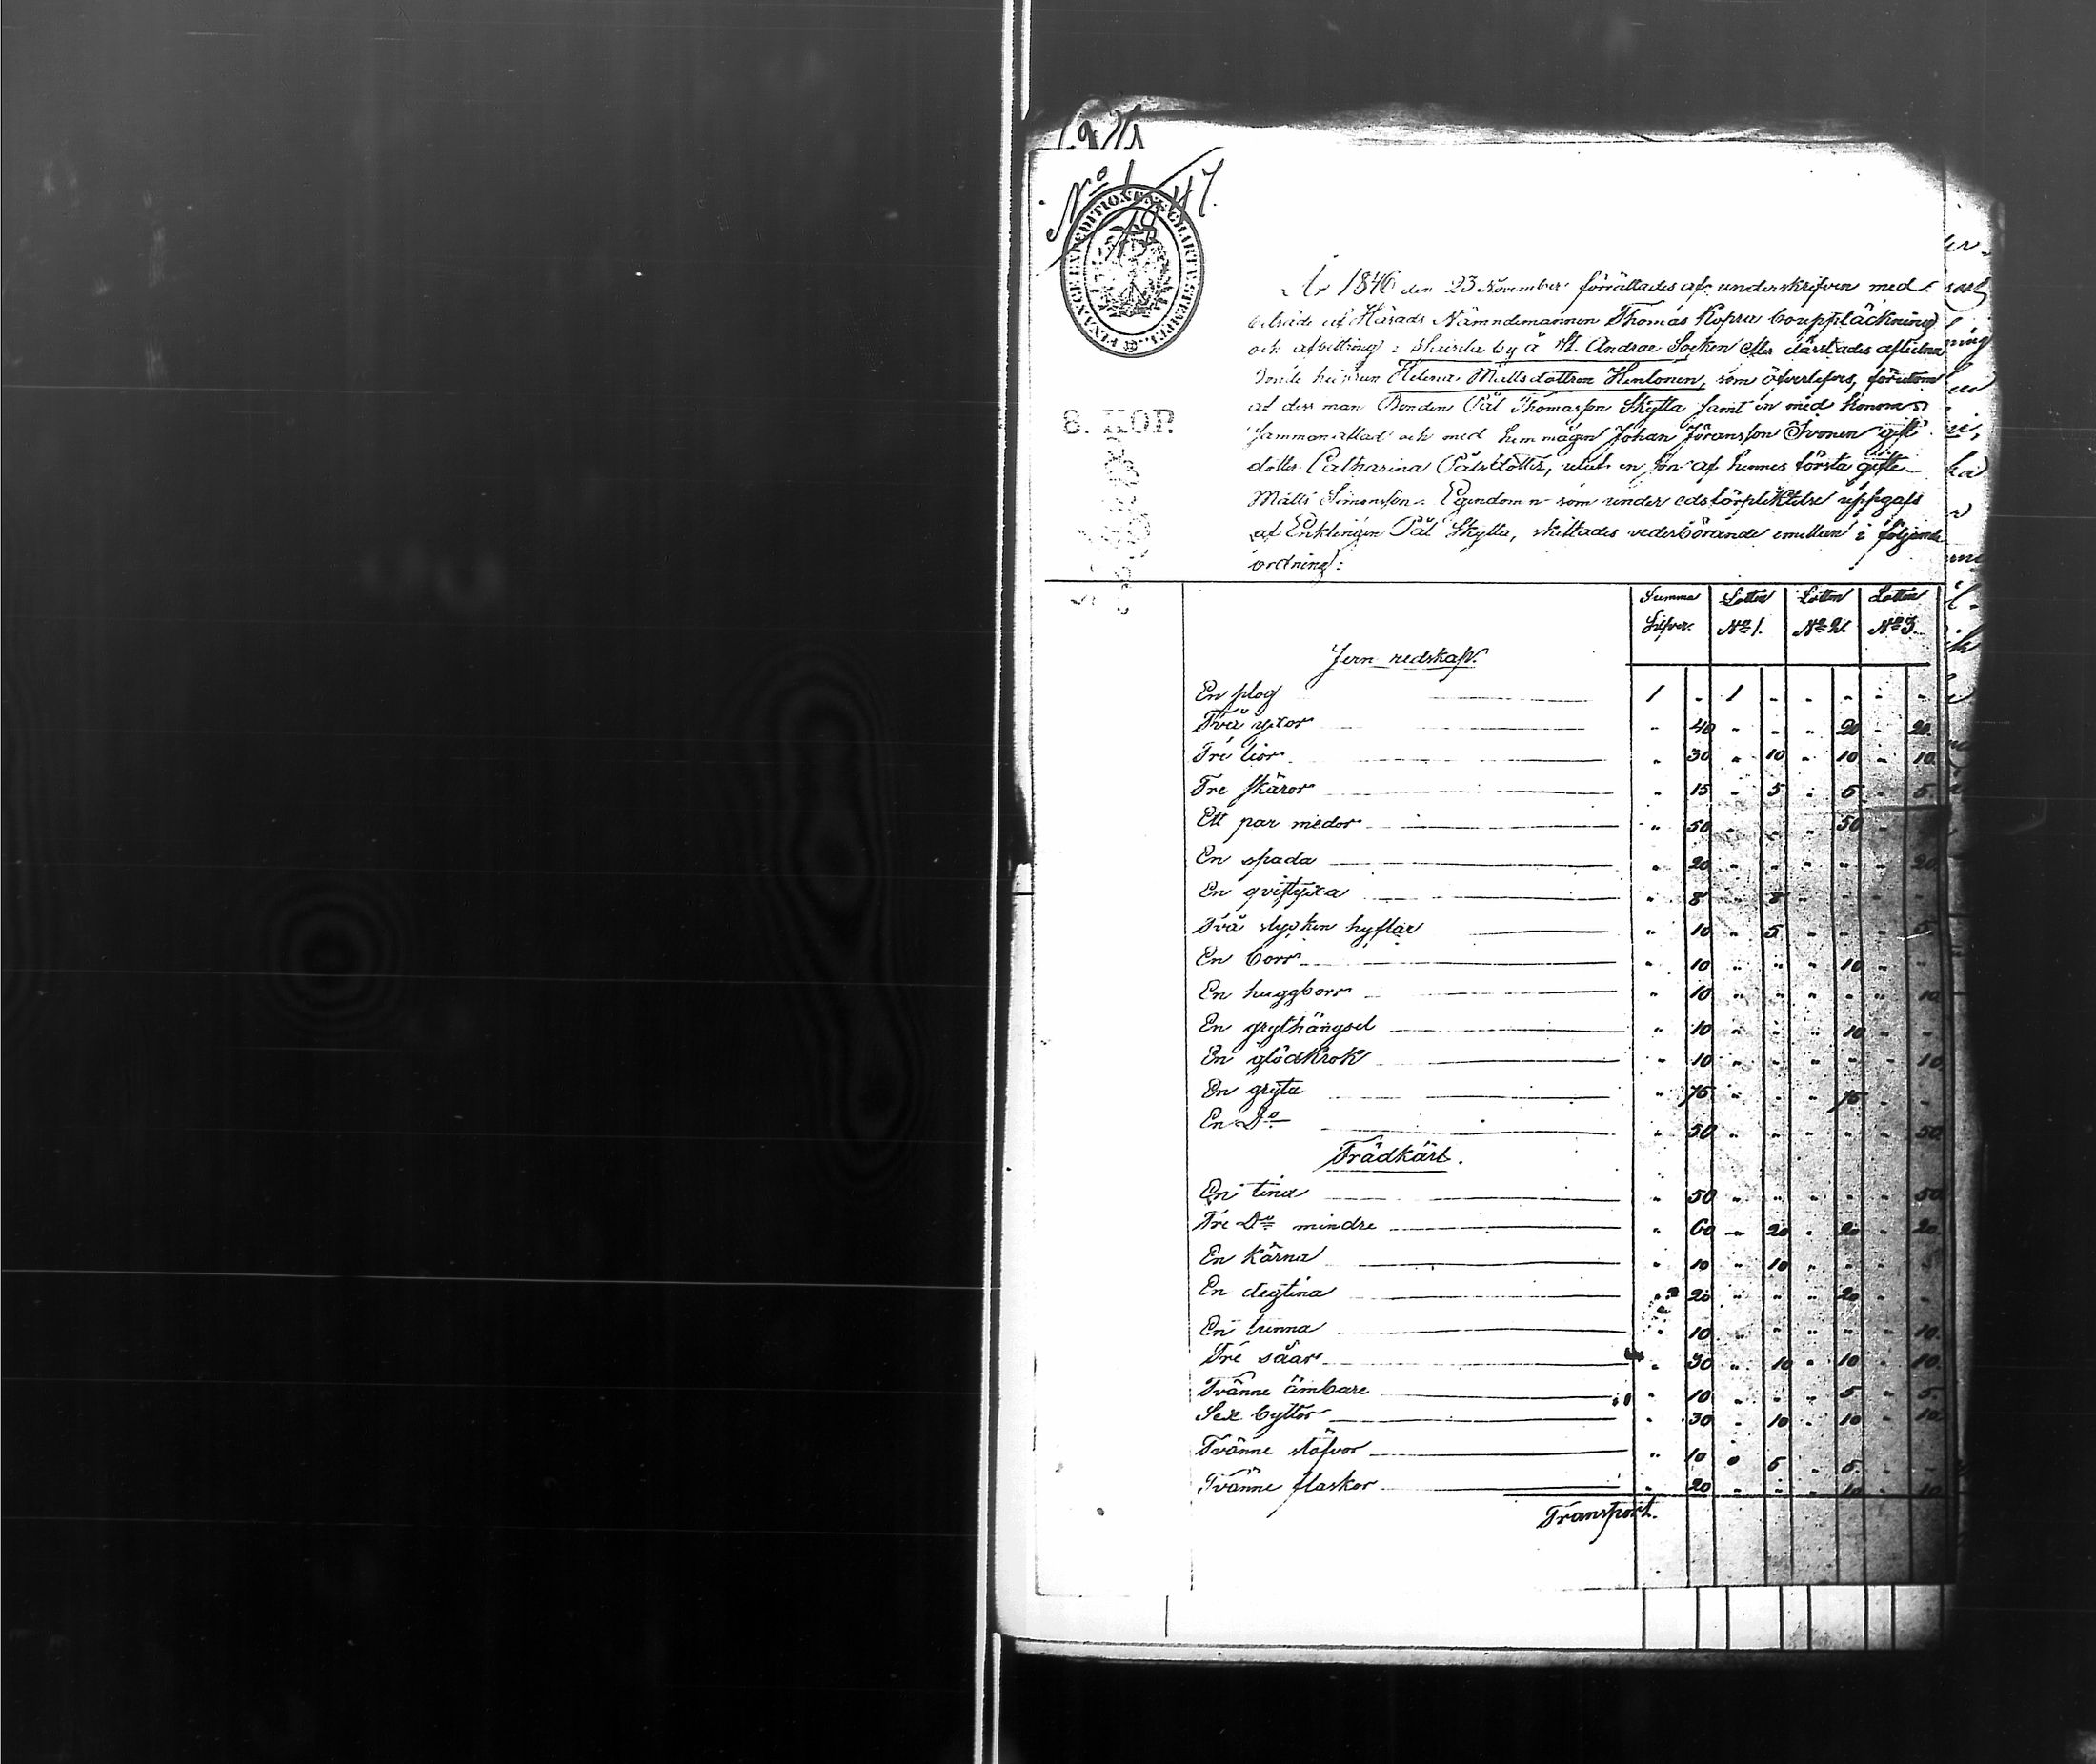 No 1
1847.
FINANCE EXPEDITIONENS CHARTÆ STEMPEL
8. KOP.
År 1846 den 23 November förrättades af underskrifven med
biträde af Härads Nämndemannen Thomas Kopra bouppläckning
och afvittring i by å St. Andrae Socken efter därstädes aflidna
Bonde hustrun Helena Mattsdotter Hentonen, som öfverlefves, förutom
af dess man Bonden Pål Thomasson Skytta samt en med honom
sammanaflad och med hemmågen Johan Jöransson Ivonen gift
dotter Catharina Pålsdotter, utaf en son af hennes första gifte
Matts Simonsson. Egendomen som under edsförpliktelse uppgafs
af Enklingen Pål Skytta, skiftades vederbörande emellan i följande
ordning:
Summa Silfver. Lotten No 1. Lotten No 2. Lotten No 3.
Jern redskap.
En plog 1 - 1 - - - - -
Två yxor " 40 - - " 20 - 20.
Tre liar " 30 " 10 - 10 - 10
Tre skäror " 15 - 5 - 5 - 5.
Ett par medor " 50 - - " 50 -
En spada " 20 - - - " - 20
En qvistyxa " 8 - 8 - - - -
Två stycken hyflar " 10 - 5 - - - 5
En borr " 10 " " " 10 - -
En huggborr " 10 " " " - " 10
En grythängsel " 10 - - - 10 - -
En glödkrok " 10 - - - - - 10
En gryta " 75 - - " 75 - -
En Do " 50 - - - - - 50
Trädkärl.
En tina " 50 - " - - - 50
Tre Do mindre " 60 - 20 - 20 - 20.
En kärna " 10 " 10 " - -
En degtina " 20 " " " 20 - -
En tunna " 10 - " " " - 10.
Tre såar " 30 " 10 " 10 - 10.
Tvänne ämbare " 10 - - - 5 - 5.
Sex byttor " 30 - 10 - 10 - 10
Tvänne stäfvor " 10 " 5 - 5 - -
Tvänne flaskor " 20 - - - 10 - 10
Transport.